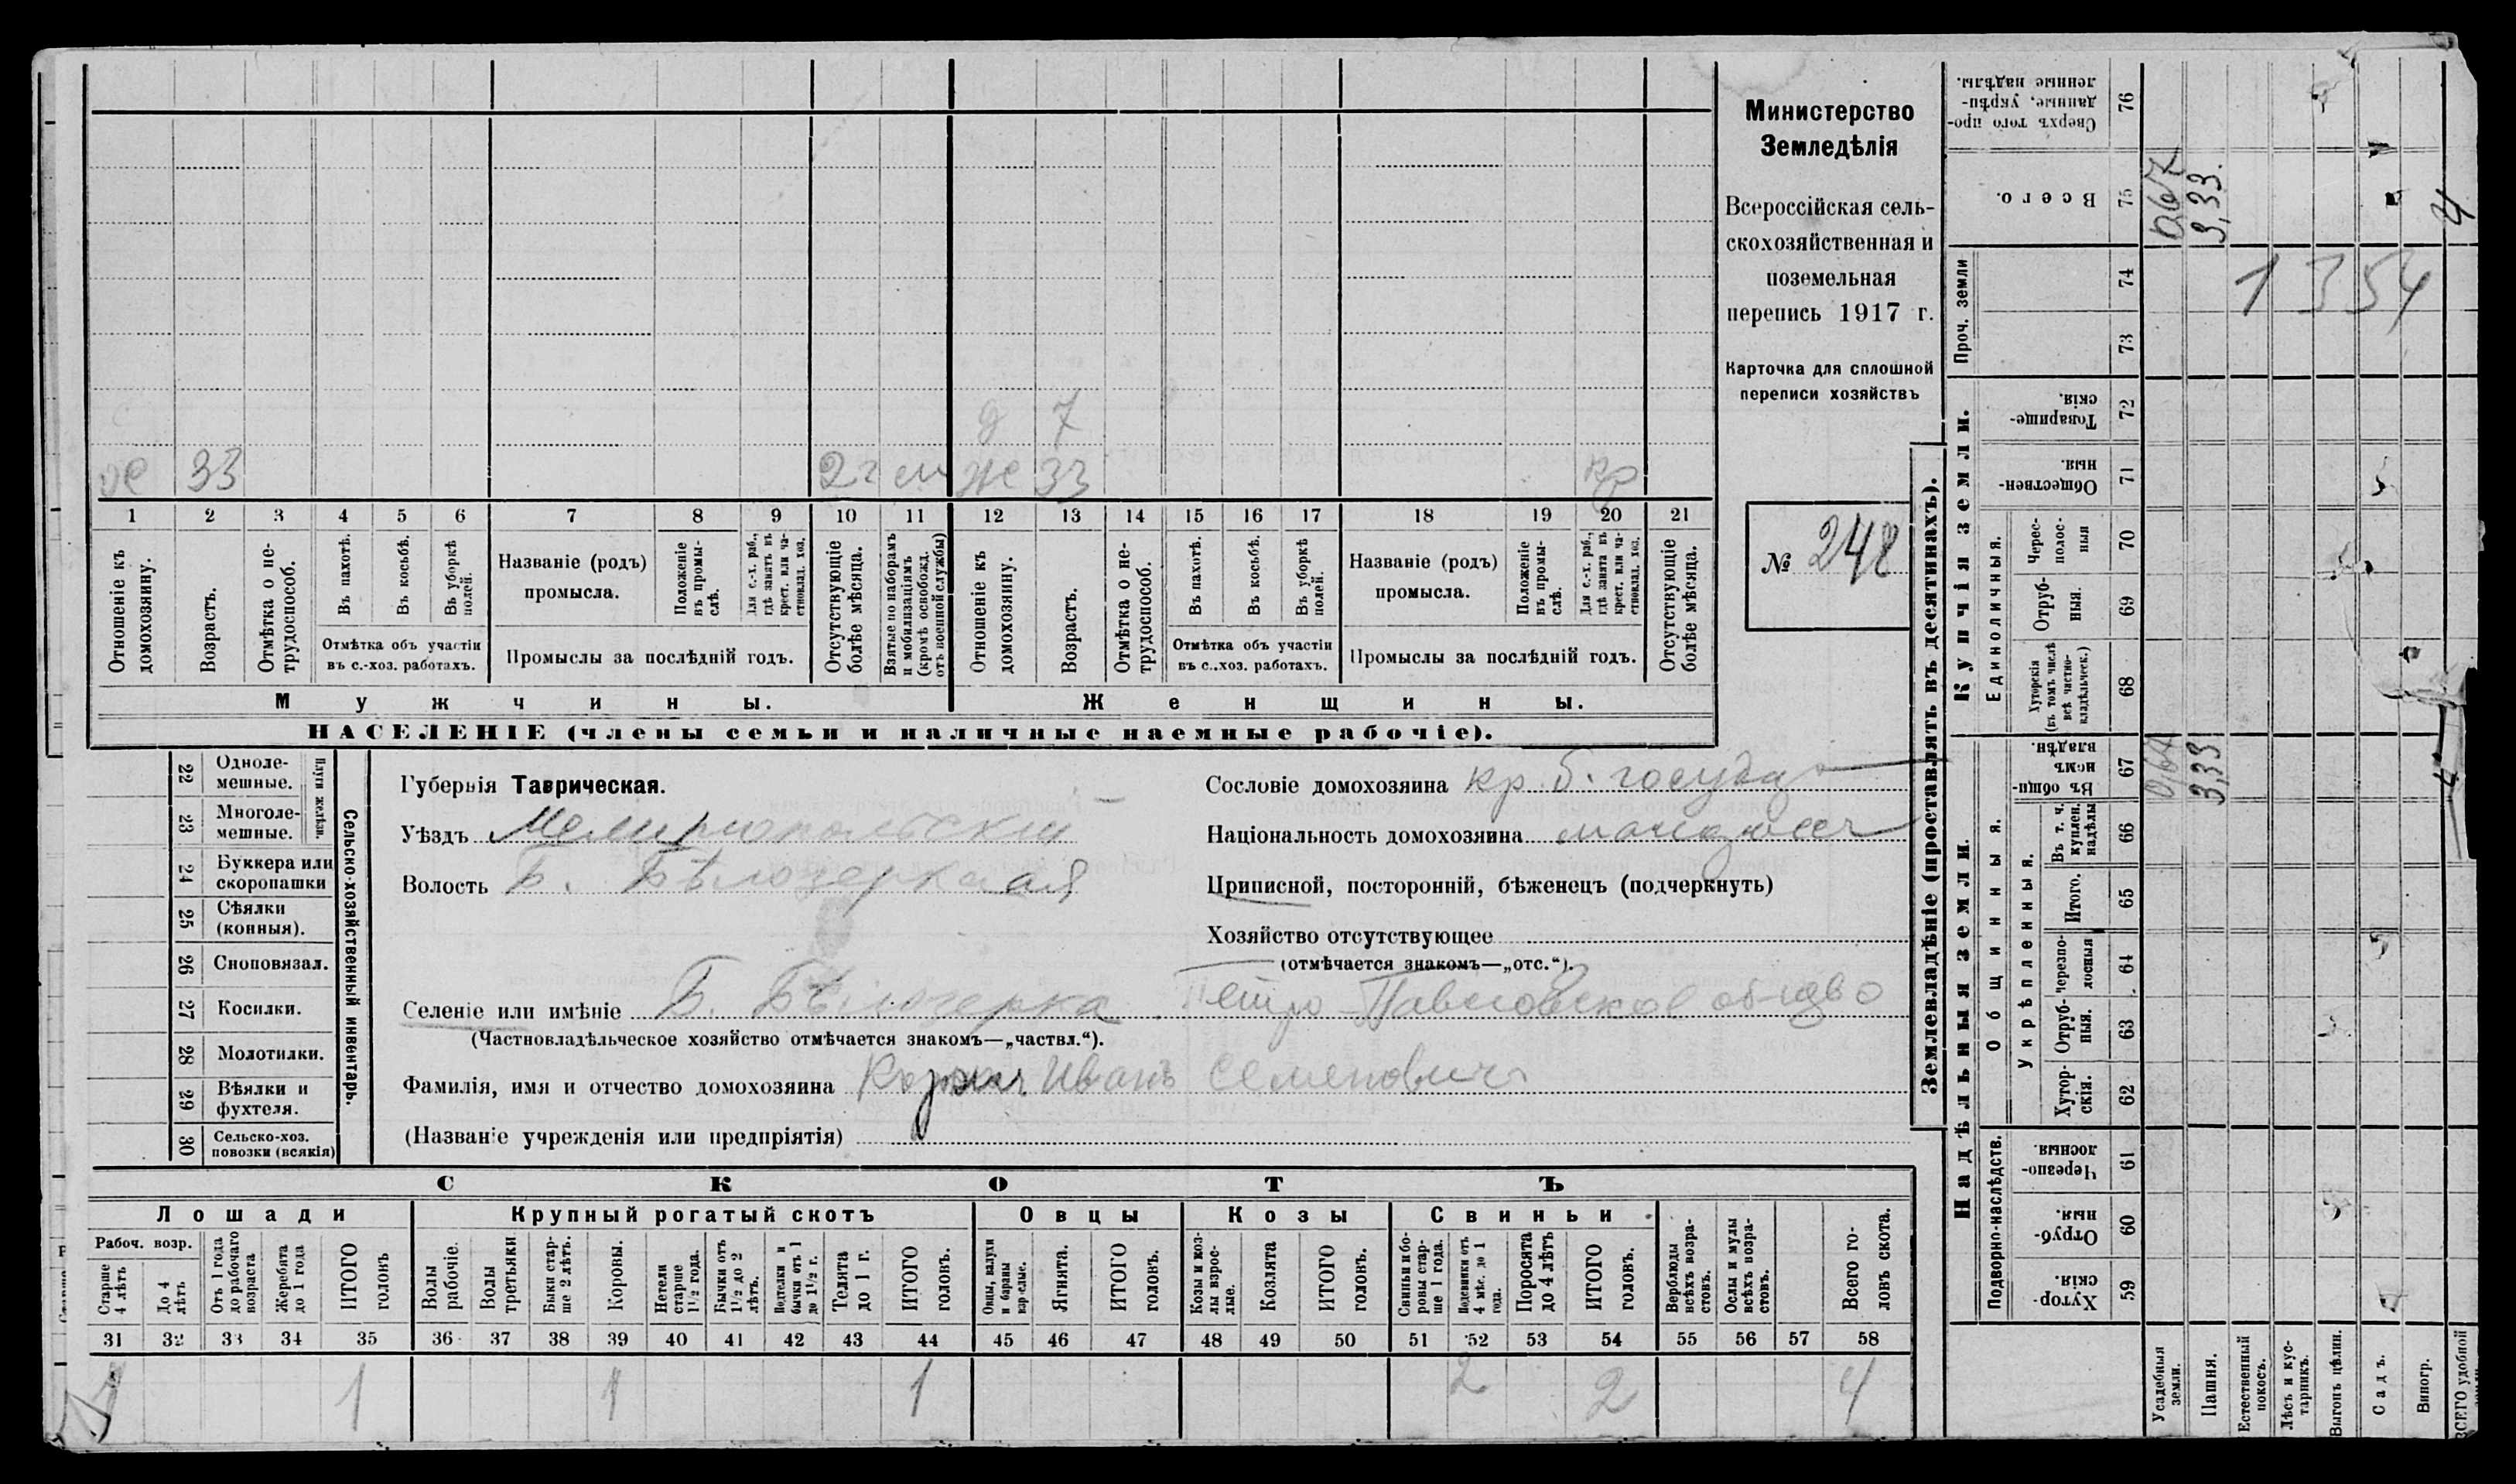 Министерство
Земледѣлія
Всероссійская сель-
скохозяйственная и
поземельная
перепись 1917 г.
Карточка для сплошной
переписи хозяйствъ
№ 248
д 7
33 2 г ж 33 кр
1 2 3 4 5 6 7 8 9 10 11 12 13 14 15 16 17 18 19 20 21
Отношеніе къ домохозяину.
Возрастъ.
Отмѣтка о не-трудоспособ.
Въ пахотѣ.
Въ косьбѣ.
Въ уборкѣ полей.
Отмѣтка объ участіи
въ с.-хоз. работахъ.
Названіе (родъ)
промысла.
Положеніе въ промы-слѣ.
Для с.-х. раб., гдѣ занятъ въ крест. или ча-стновлад. хоз.
Промыслы за послѣдній годъ.
Отсутствующіе болѣе мѣсяца.
Взятые по наборамъ и мобилизаціямъ (кромѣ освобожд. отъ военной службы)
Отношеніе къ домохозяину.
Возрастъ.
Отмѣтка о не-трудоспособ.
Въ пахотѣ.
Въ косьбѣ.
Въ уборкѣ полей.
Отмѣтка объ участіи
въ с..хоз. работахъ.
Названіе (родъ)
промысла.
Положеніе въ промы-слѣ.
Для с.-х. раб., гдѣ занята въ крест. или ча-стновлад. хоз.
Промыслы за послѣдній годъ.
Отсутствующіе болѣе мѣсяца.
Мужчины.
Женщины.
НАСЕЛЕНІЕ (члены семьи и наличные наемные рабочіе).
22 Одноле-мешные.
23 Многоле-мешные.
Плуги желѣзн.
24 Буккера или скоропашки
25 Сѣялки (конныя).
26 Сноповязал.
27 Косилки.
28 Молотилки.
29 Вѣялки и фухтеля.
30 Сельско-хоз. повозки (всякія)
Сельско-хозяйственный инвентарь.
Губернія Таврическая.
Уѣздъ Мелитопольскій
Волость Б. Бѣлозерская
Сословіе домохозяина кр. б. госуда
Національность домохозяина малоросс
Приписной, посторонній, бѣженецъ (подчеркнуть)
Хозяйство отсутствующее
(отмѣчается знакомъ—„отс.“).
Селеніе или имѣніе Б. Бѣлозерка Петро-Павловское общво
(Частновладѣльческое хозяйство отмѣчается знакомъ—„частвл.“).
Фамилія, имя и отчество домохозяина Иванъ Семеновичъ
(Названіе учрежденія или предпріятія)
СКОТЪ
Лошади
Крупный рогатый скотъ
Овцы
Козы
Свиньи
Рабоч. возр.
Старше 4 лѣтъ
До 4 лѣтъ
Отъ 1 года до рабочаго возраста
Жеребята до 1 года
ИТОГО головъ
Волы рабочіе.
Волы третьяки.
Быки стар-ше 2 лѣтъ.
Коровы.
Нетели старше 1½ года.
Бычки отъ 1½ до 2 лѣтъ.
Подтелки и бычки отъ 1 до 1½ г.
Телята до 1 г.
ИТОГО головъ.
Овцы, валухи и бараны взрослые.
Ягнята.
ИТОГО головъ.
Козы и коз-лы взрос-лые.
Козлята
ИТОГО головъ.
Свиньи и бо-ровы стар-ше 1 года.
Подсвинки отъ 4 мѣс. до 1 года.
Поросята до 4 лѣтъ
ИТОГО головъ.
Верблюды всѣхъ возра-стовъ.
Ослы и мулы всѣхъ возра-стовъ.
Всего го-ловъ скота.
31 32 33 34 35 36 37 38 39 40 41 42 43 44 45 46 47 48 49 50 51 52 53 54 55 56 57 58
1 1 1 1 2 2 4
Землевладѣніе (проставлять въ десятинахъ).
Надѣльныя земли.
Купчія земли.
Проч. земли
Подворно-наслѣдств.
Общинныя.
Укрѣпленныя.
Единоличныя.
Хутор-скія. 59
Отруб-ныя. 60
Черезпо-лосныя 61
Хутор-скія. 62
Отруб-ныя. 63
Черезпо-лосныя 64
Итого. 65
Въ т. ч. куплен. надѣлы 66
Въ общи-номъ владѣн. 67
Хуторскія (въ томъ числѣ всѣ частно-владѣльческ.) 68
Отруб-ныя. 69
Черес-полос-ныя 70
Обществен-ныя 71
Товарище-скія. 72
73
74
Всего. 75
Сверхъ того про-данные, укрѣп-ленные надѣлы. 76
0,67 3,33 4
0,67 3,33. 4
1354
Усадебныя земли.
Пашня.
Естественный покосъ.
Лѣсъ и кус-тарникъ.
Выгонъ цѣлин.
Садъ.
Виногр.
ВСЕГО удобной